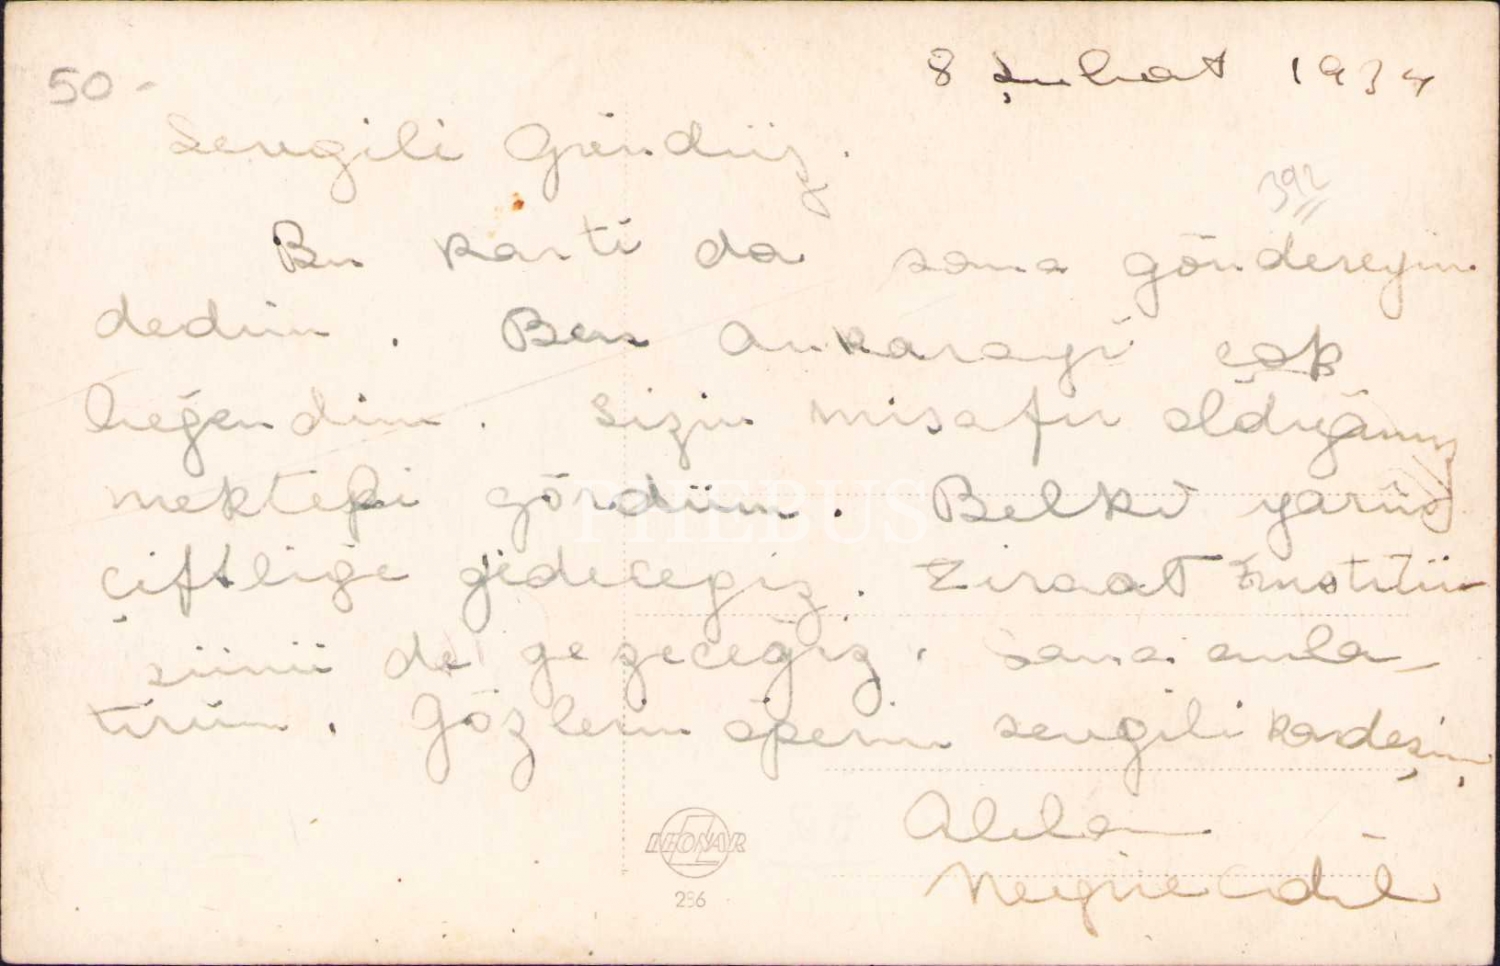 50-
8 Şubat 1934
Sevgili Gündüz.
392
Bu kartı da sana göndereyim
dedim. Ben Ankarayı çok
beğendim. Sizin misafir olduğunuz
mektebi gördüm. Belki yarın
çiftliğe gideceğiz. Ziraat Enstitü
sünü de gezeceğiz. Sana anla-
tırım. Gözlerin öperim sevgili kardeşim,
PHEBUS
LEONAR
236